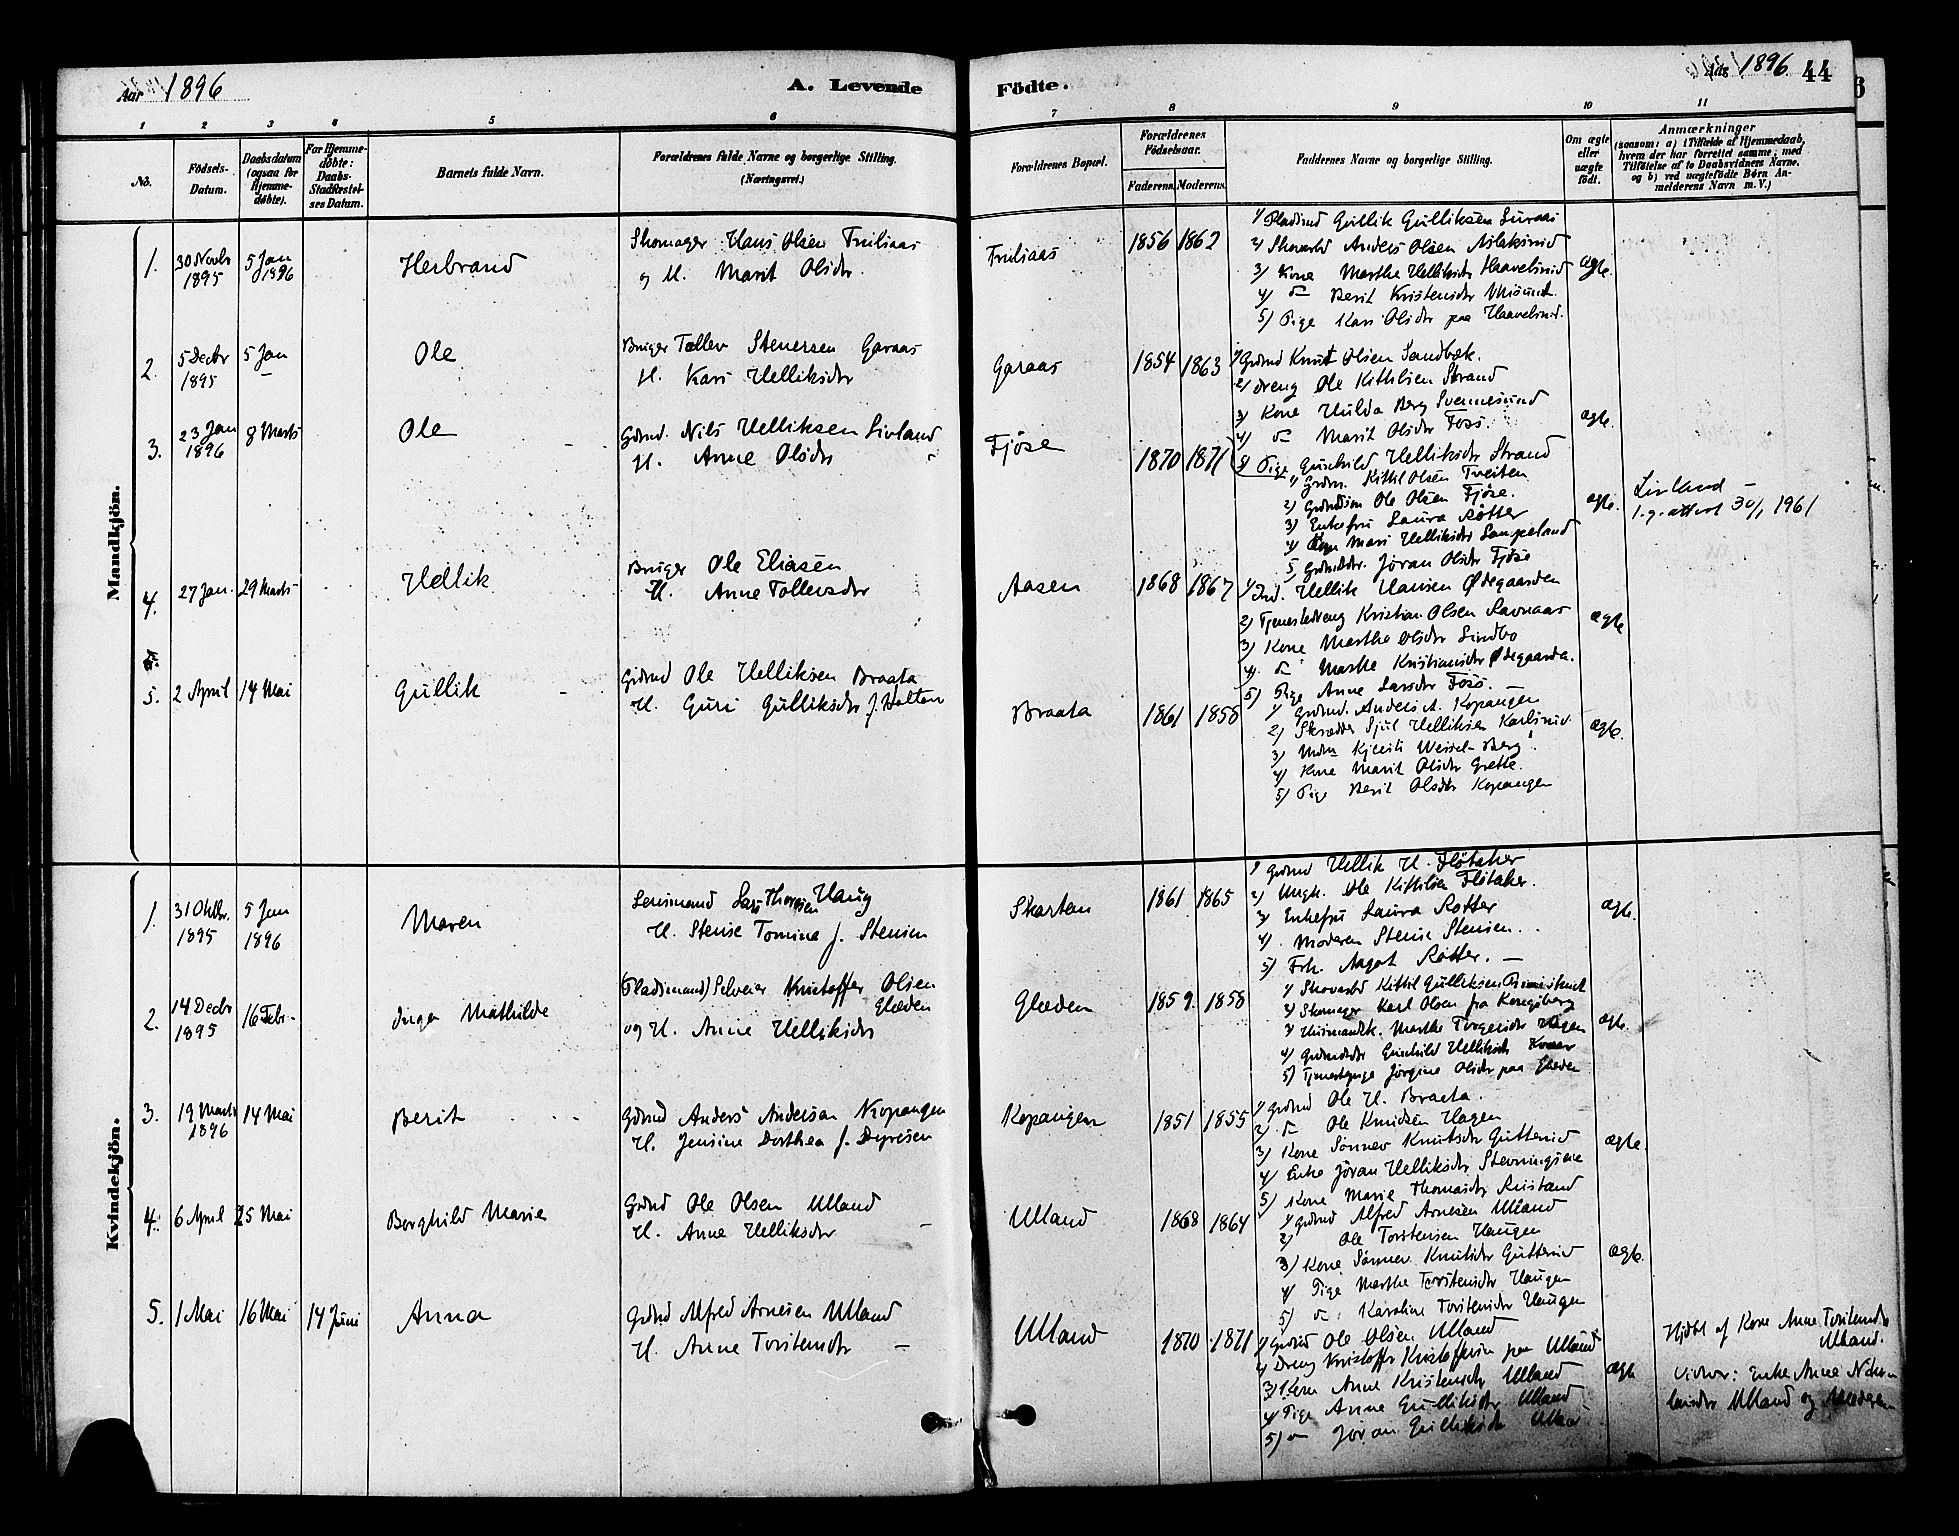 Aar 1896
A. Levende
Födte.
Aar 1896
44
1 2 3 4 5 6 7 8 9 10 11
No.
Födsels-Datum.
Daabsdatum (ogsaa for Hjemme-døbte).
For Hjemme-døbte: Daabs-Stadfæstel-ses Datum.
Barnets fulde Navn.
Forældrenes fulde Navne og borgerlige Stilling. (Næringsvei.)
Forældrenes Bopæl.
Forældrenes Födselsaar.
Faderens. Moderens.
Faddernes Navne og borgerlige Stilling.
Om ægte eller uægte födt.
Anmærkninger
(saasom: a) i Tilfælde af Hjemmedaab, hvem der har forrettet samme, med Tilföielse af to Daabsvidners Navne, og b) ved uægtefödte Börn An-melderens Navn m. V.)
Mandkjön.
1. 30 Novbr 1895
5 Jan 1896
Herbrand
Skomager Hans Olsen Truliaas
og H. Marit Olsdr.
Truliaas
1856 1862
1) Pladsmd Gullik Gulliksen
2) Anders Olsen
3) Kone Marthe Helliksdr
4) do Berit Kristensdr
5) Pige Kari Olsdr paa
ægte.
2. 5 Decbr 1895
5 Jan
Ole
Bruger Tollev Stenersen Garaas
H. Kari Helliksdr
Garaas
1854 1863
1) Grdmd Knut Olsen Sandbæk.
2) Dreng Ole Kittilsen Strand
3) Kone Hulda Berg Svennesund
4) do Marit Olsdr Foss.
5) Pige Gunhild Helliksdr Strand
ægte.
3. 23 Jan 1896
8 Marts
Ole
Grdmd. Nils Helliksen Livland
H. Anne Olsdr
Fjøse
1870 1871
1) Grdm. Kittil Olsen Tveiten
2) Grdmdsøn Ole Olsen Fjøse.
3) Enkefru Laura Rotter
4) Kone Mari Helliksdr Lampeland
5) Grdmddr. Jøran Olsdr Fjøse
ægte.
Livland –
l.g. attest 30/1 1961
4. 27 Jan.
29 Marts
Hellik
Bruger Ole Eliasen
H. Anne Tollevsdr
Aasen
1868 1867
1) Ind. Hellik Hansen Ødegaarden
2) Tjenestedreng Kristian Olsen Ravnaas
3) Kone Marthe Olsdr Lindbo
4) do Marthe Kristiansdr Ødegaarden.
5) Pige Anne Larsdr Foss.
ægte
5. 2 April
14 Mai
Gullik
Grdmd Ole Helliksen Braata
H. Guri Gulliksdr f. Holtan
Braata
1861 1858
1) Grdmd. Anders A. Kopangen
2) Skrædder Sjul Helliksen
3) Mdm Kjersti Wessel-Berg
4) Kone Marit Olsdr Grette.
5) Pige Berit Olsdr Kopangen
ægte.
Kvindekjön.
1. 31 Oktbr. 1895
5 Jan 1896
Maren
Lensmand Lars Thoresen Haug
H. Stense Tomine f. Stensen
Skartem
1861. 1865
1) Grdmd Hellik H. Fløtaker
2) Ungk. Ole Kittilsen Fløtaker.
3) Enkefru Laura Rotter
4) Moderen Stense Stensen.
5) Frk. Aagot Rotter. –
ægte.
2. 14 Decbr 1895
16 Febr.
Inga Mathilde
(Pladsmand) Selveier Kristoffer Olsen Glæden
og H. Anne Helliksdr
Glæden
1859. 1858
1) Skovarbd Kittil Gulliksen
2) Skomager Karl Olsen fra Kongsberg
3) Husmandsk. Marthe Torgersdr Hagen
4) Grdmddtr Gunhild Helliksdr
5) Tjenestepige Jørgine Olsdr paa Glæden
ægte.
3. 19 Marts 1896
14 Mai
Berit
Grdmd Anders Andersen Kopangen
H. Jensine Dorthea f. Depresen
Kopangen
1851 1855
1) Grdmd Ole H. Braata.
2) do Ole Knudsen Hagen
3) Kone Sønnev Knutsdr Guttersrud
4) Enke Jøran Helliksdr
5) Kone Marie Thomasdr Rustand
ægte.
4. 6 April
25 Mai
Borghild Marie
Grdmd Ole Olsen Ulland
H. Anne Helliksdr
Ulland
1868 1864
1) Grdmd Alfred Arnesen Ulland
2) Ole Torstensen Haugen
3) Kone Sønnev Knutsdr Guttersrud
4) Pige Marthe Torstensdr Haugen
5) do Karoline Torstensdr Haugen
ægte.
5. 1 Mai
16 Mai
14 Juni
Anna
Grdmd Alfred Arnesen Ulland
H. Anne Torstensdr –
Ulland
1870 1871
1) Grdmd Ole Olsen Ulland
2) Dreng Kristoffer Kristoffersen paa Ulland
3) Kone Anne Kristensdr Ulland
4) Pige Anne Gulliksdr Ulland
5) do Jøran Gulliksdr
ægte
Hjdbt af Kone Anne Torstensdr Ulland.
Vidner: Enke Anne Ulland og Moderen